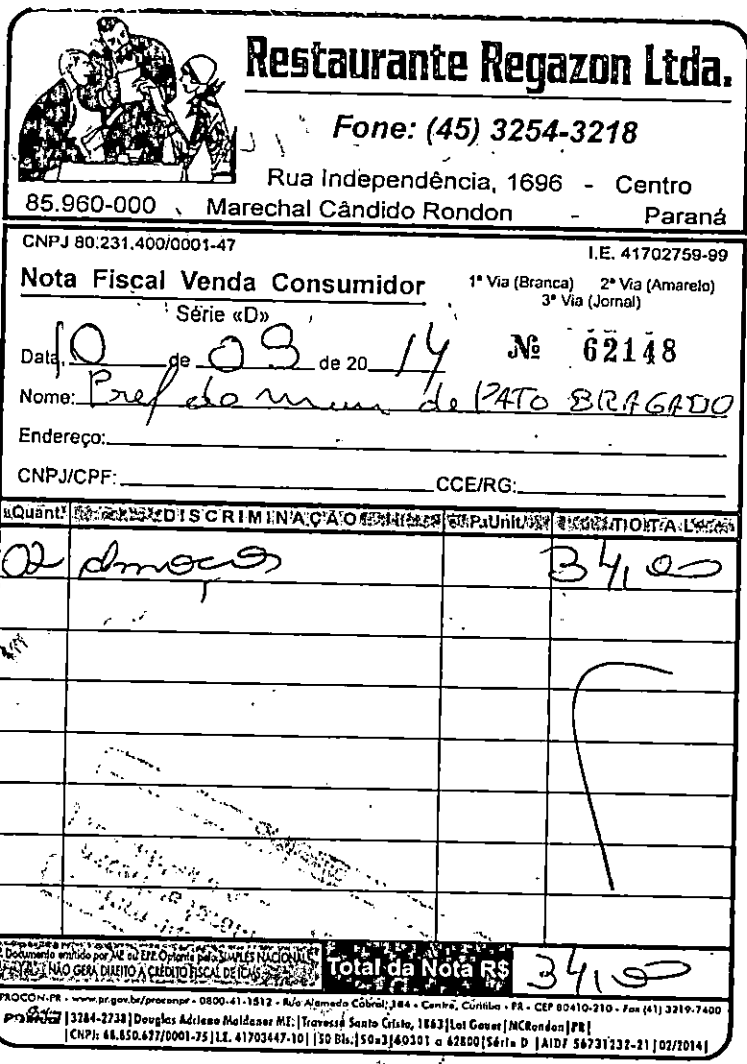 Restaurante Regazon Ltda.
Fone: (45) 3254-3218
Rua Independência, 1696 - Centro
85.960-000 Marechal Cândido Rondon - Paraná
CNPJ 80.231.400/0001-47 I.E. 41702759-99
Nota Fiscal Venda Consumidor 1ª Via (Branca) 2ª Via (Amarelo)
3ª Via (Jornal)
Série «D»
Data, 10 de 09 de 2014 Nº 62148
Nome: Pref do mun de PATO BRAGADO
Endereço:
CNPJ/CPF: CCE/RG:
Quant. DISCRIMINAÇÃO P. Unit. TOTAL
02 almoços 34,00
Documento emitido por ME ou EPP Optante pelo SIMPLES NACIONAL
NÃO GERA DIREITO A CRÉDITO FISCAL DE ICMS
Total da Nota R$ 34,00
PROCON-PR - www.pr.gov.br/proconpr - 0800-41-1512 - Rua Alameda Cabral, 184 - Centro, Curitiba - PR - CEP 80410-210 - Fax (41) 3219-7400
3284-2738 | Douglas Adriano Maldaner ME: | Travessa Santo Cristo, 1863 | Lot Gauer | MCRondon | PR |
| CNPJ: 68.850.627/0001-75 | I.E. 41703447-10 | 50 Bls. | 50x3 | 60301 a 62800 | Série D | AIDF 56731232-21 | 02/2014 |